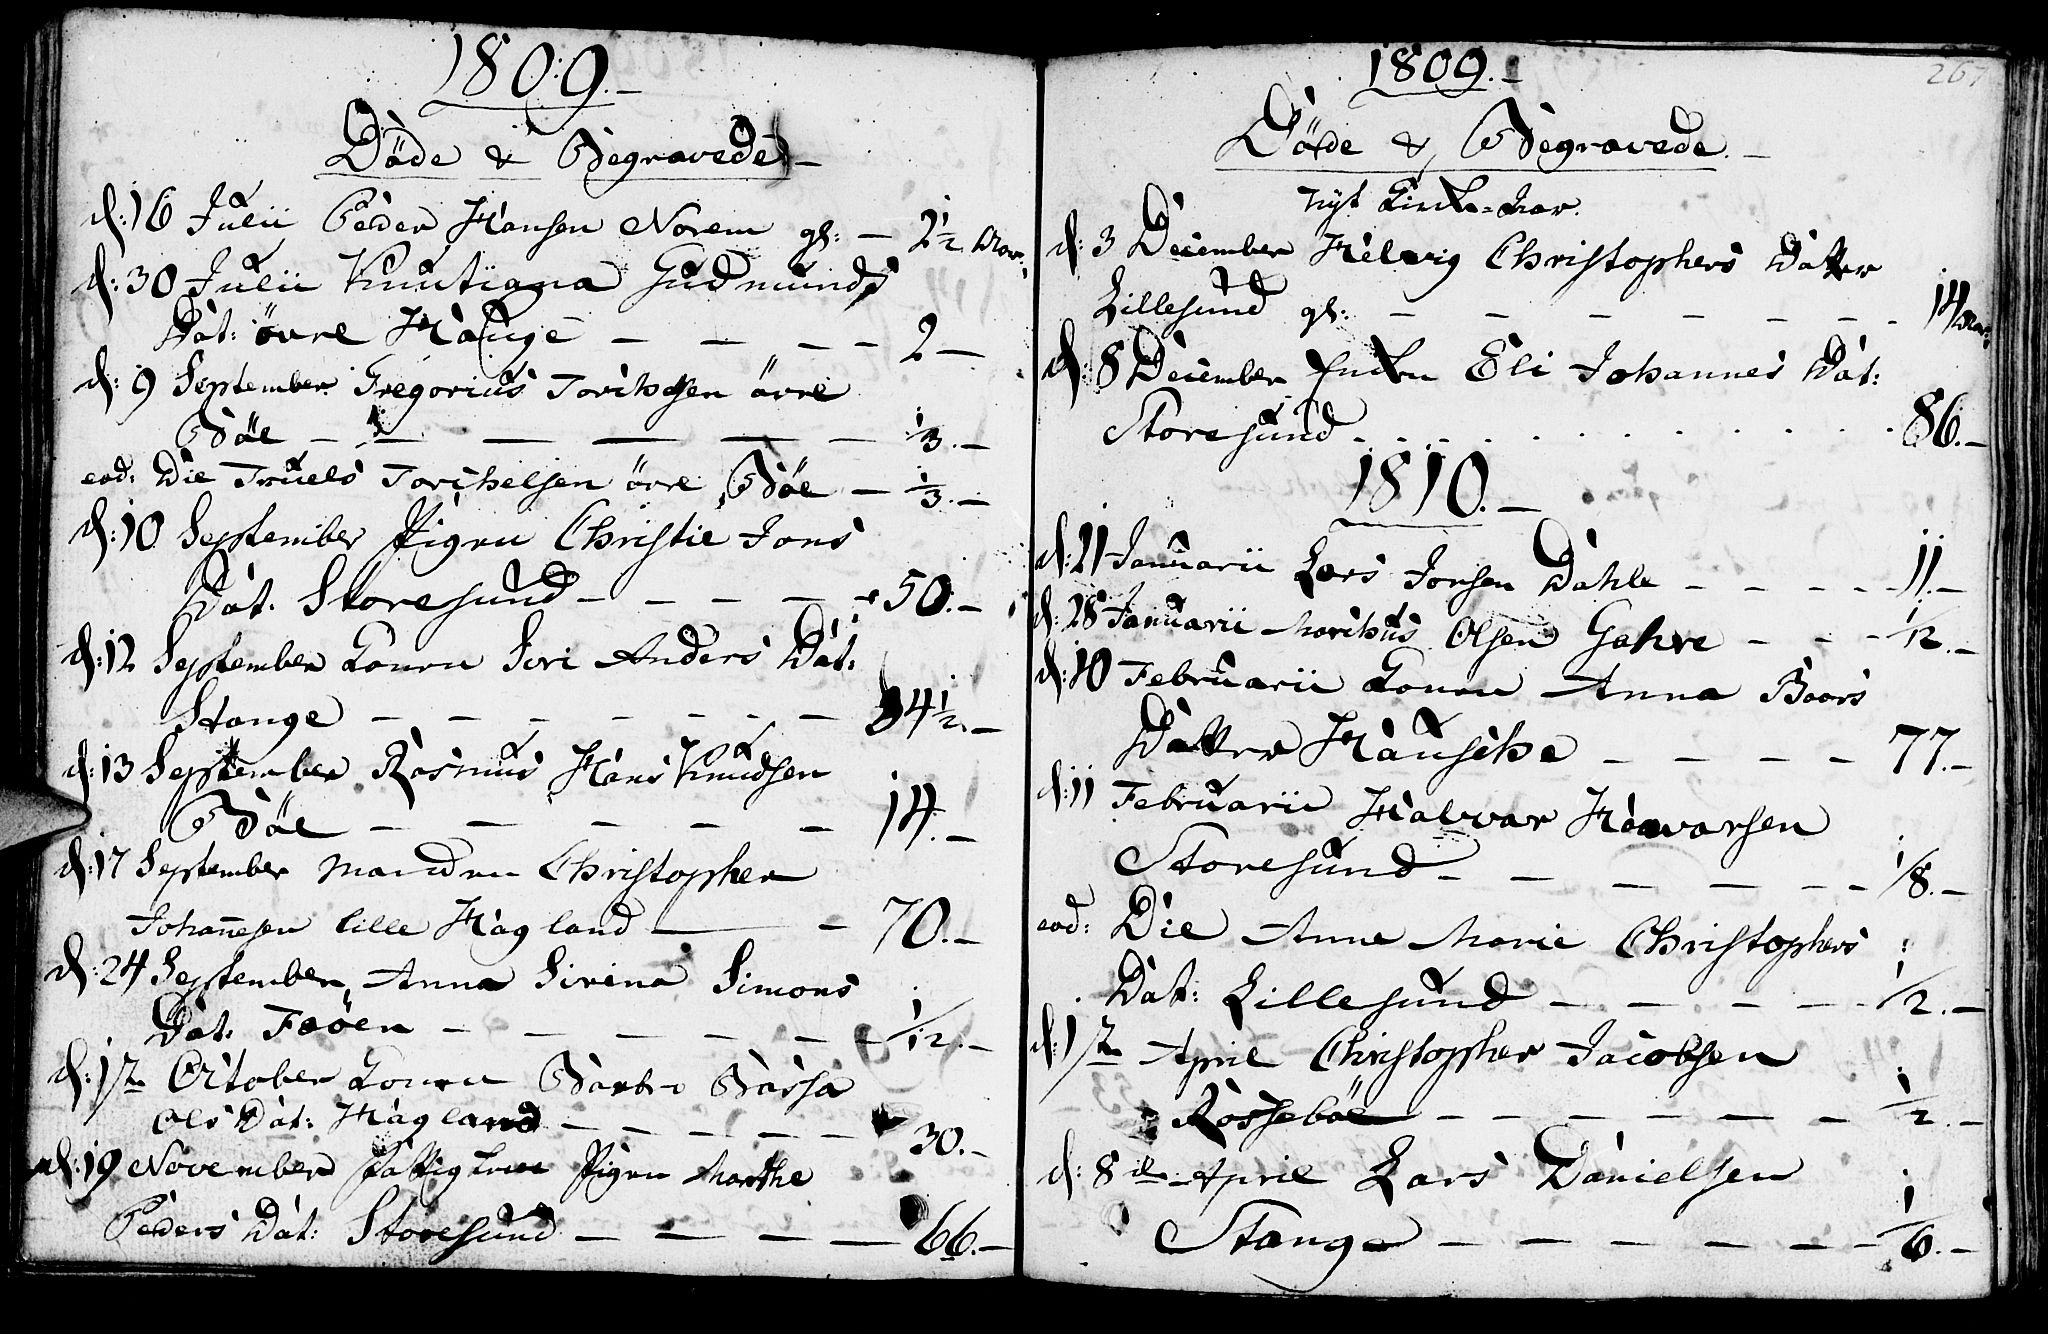 1809.-
Döde & Begravede.-
d: 16 Julii Peder Hansen Norem gl: - 2 1/2 aar:
d: 30 Julii Knutiana Gudmunds
Dat: övre Hauge - - - - 2 -
d: 9 September Gregorius Torchelsen övre
Böe - - - - - - 1/3.-
eod: Die Truels Torchelsen övre Böe - 1/3.-
d: 10 September Pigen Christie Jons
Dat. Storesund - - - - - 50.-
d: 12 September Konen Siri Anders Dat:
Stange - - - - - - - 34 1/2.-
d: 13 September Rasmus Hans Knudsen
Böe - - - - - 14.-
d: 17 September Manden Christopher
Johannesen lille Hagland - - 70.-
d: 24 September Anna Sirina Simons
Dat: Feöen - - - - - - 1/12.-
d: 1ste October Konen Barbro Bassa
Ols Dat: Hagland - - - - - 30.-
d: 19 November Pigen Marthe
Peders Dat: Storesund - - - - 66.-
267
1809.-
Döde & Begravede.-
Nyt Kirke-Aar.
d: 3 December Helvig Christophers Datter
Lillesund gl: - - - - - - - 14 aar:
d: 8 December Enken Eli Johannes Dat:
Storesund . . . . . . . . . . 86.-
1810.-
d: 21 Januarii Lars Jonsen Dahle - - - - 11.-
d: 28 Januarii Marchus Olsen Gahre - - - 1/12.-
d: 10 Februarii Konen Anna Baars
Datter Hausche - - - - 77.-
d: 11 Februarii Halvar Haavarsen
Storesund - - - - - - 1/8.-
eod: Die Anne Marie Christophers
Dat: Lillesund - - - - - - 1/2.-
d: 1ste April Christopher Jacobsen
Rosseböe - - - - - - 1/2.-
d: 8de April Lars Danielsen
Stange - - - - - - - 1/6.-